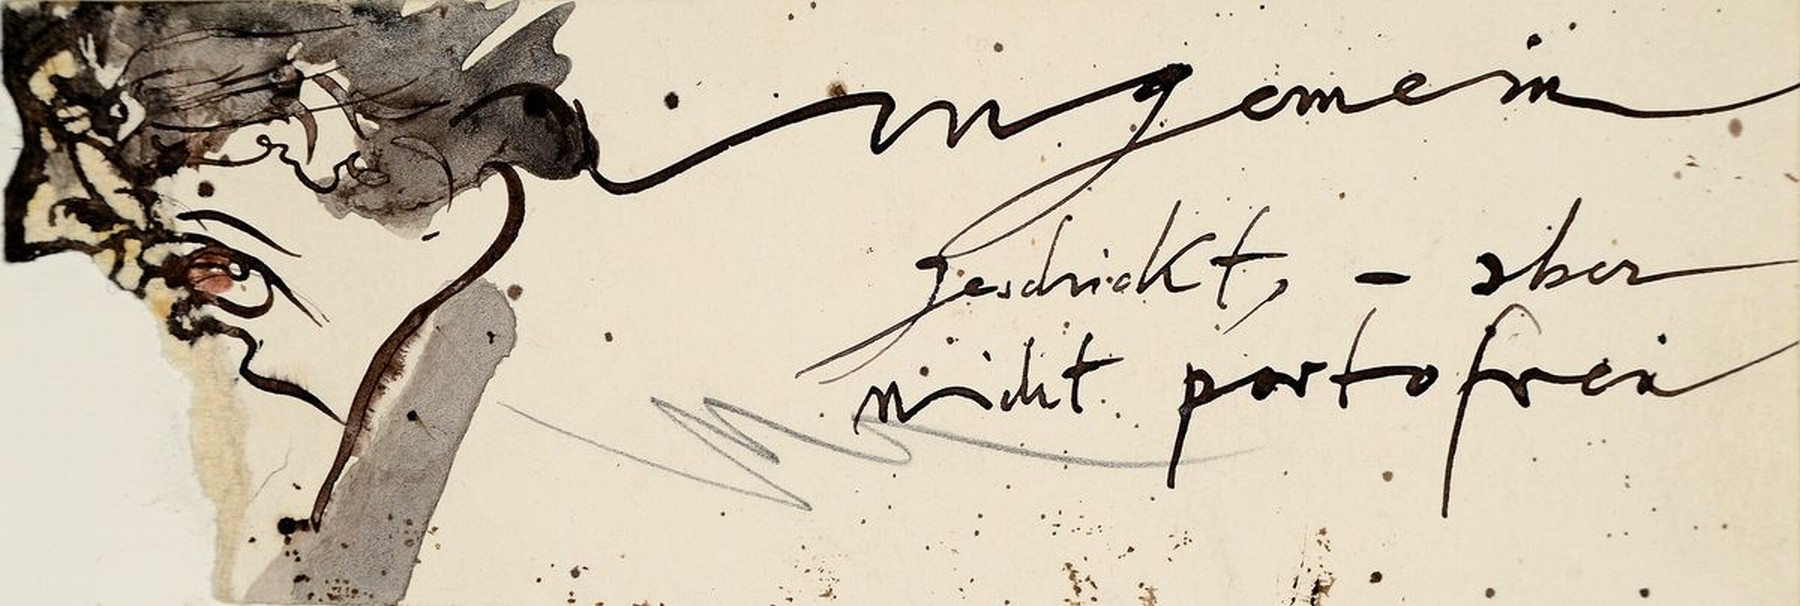 ungemein
geschickt, – aber
nicht portofrei